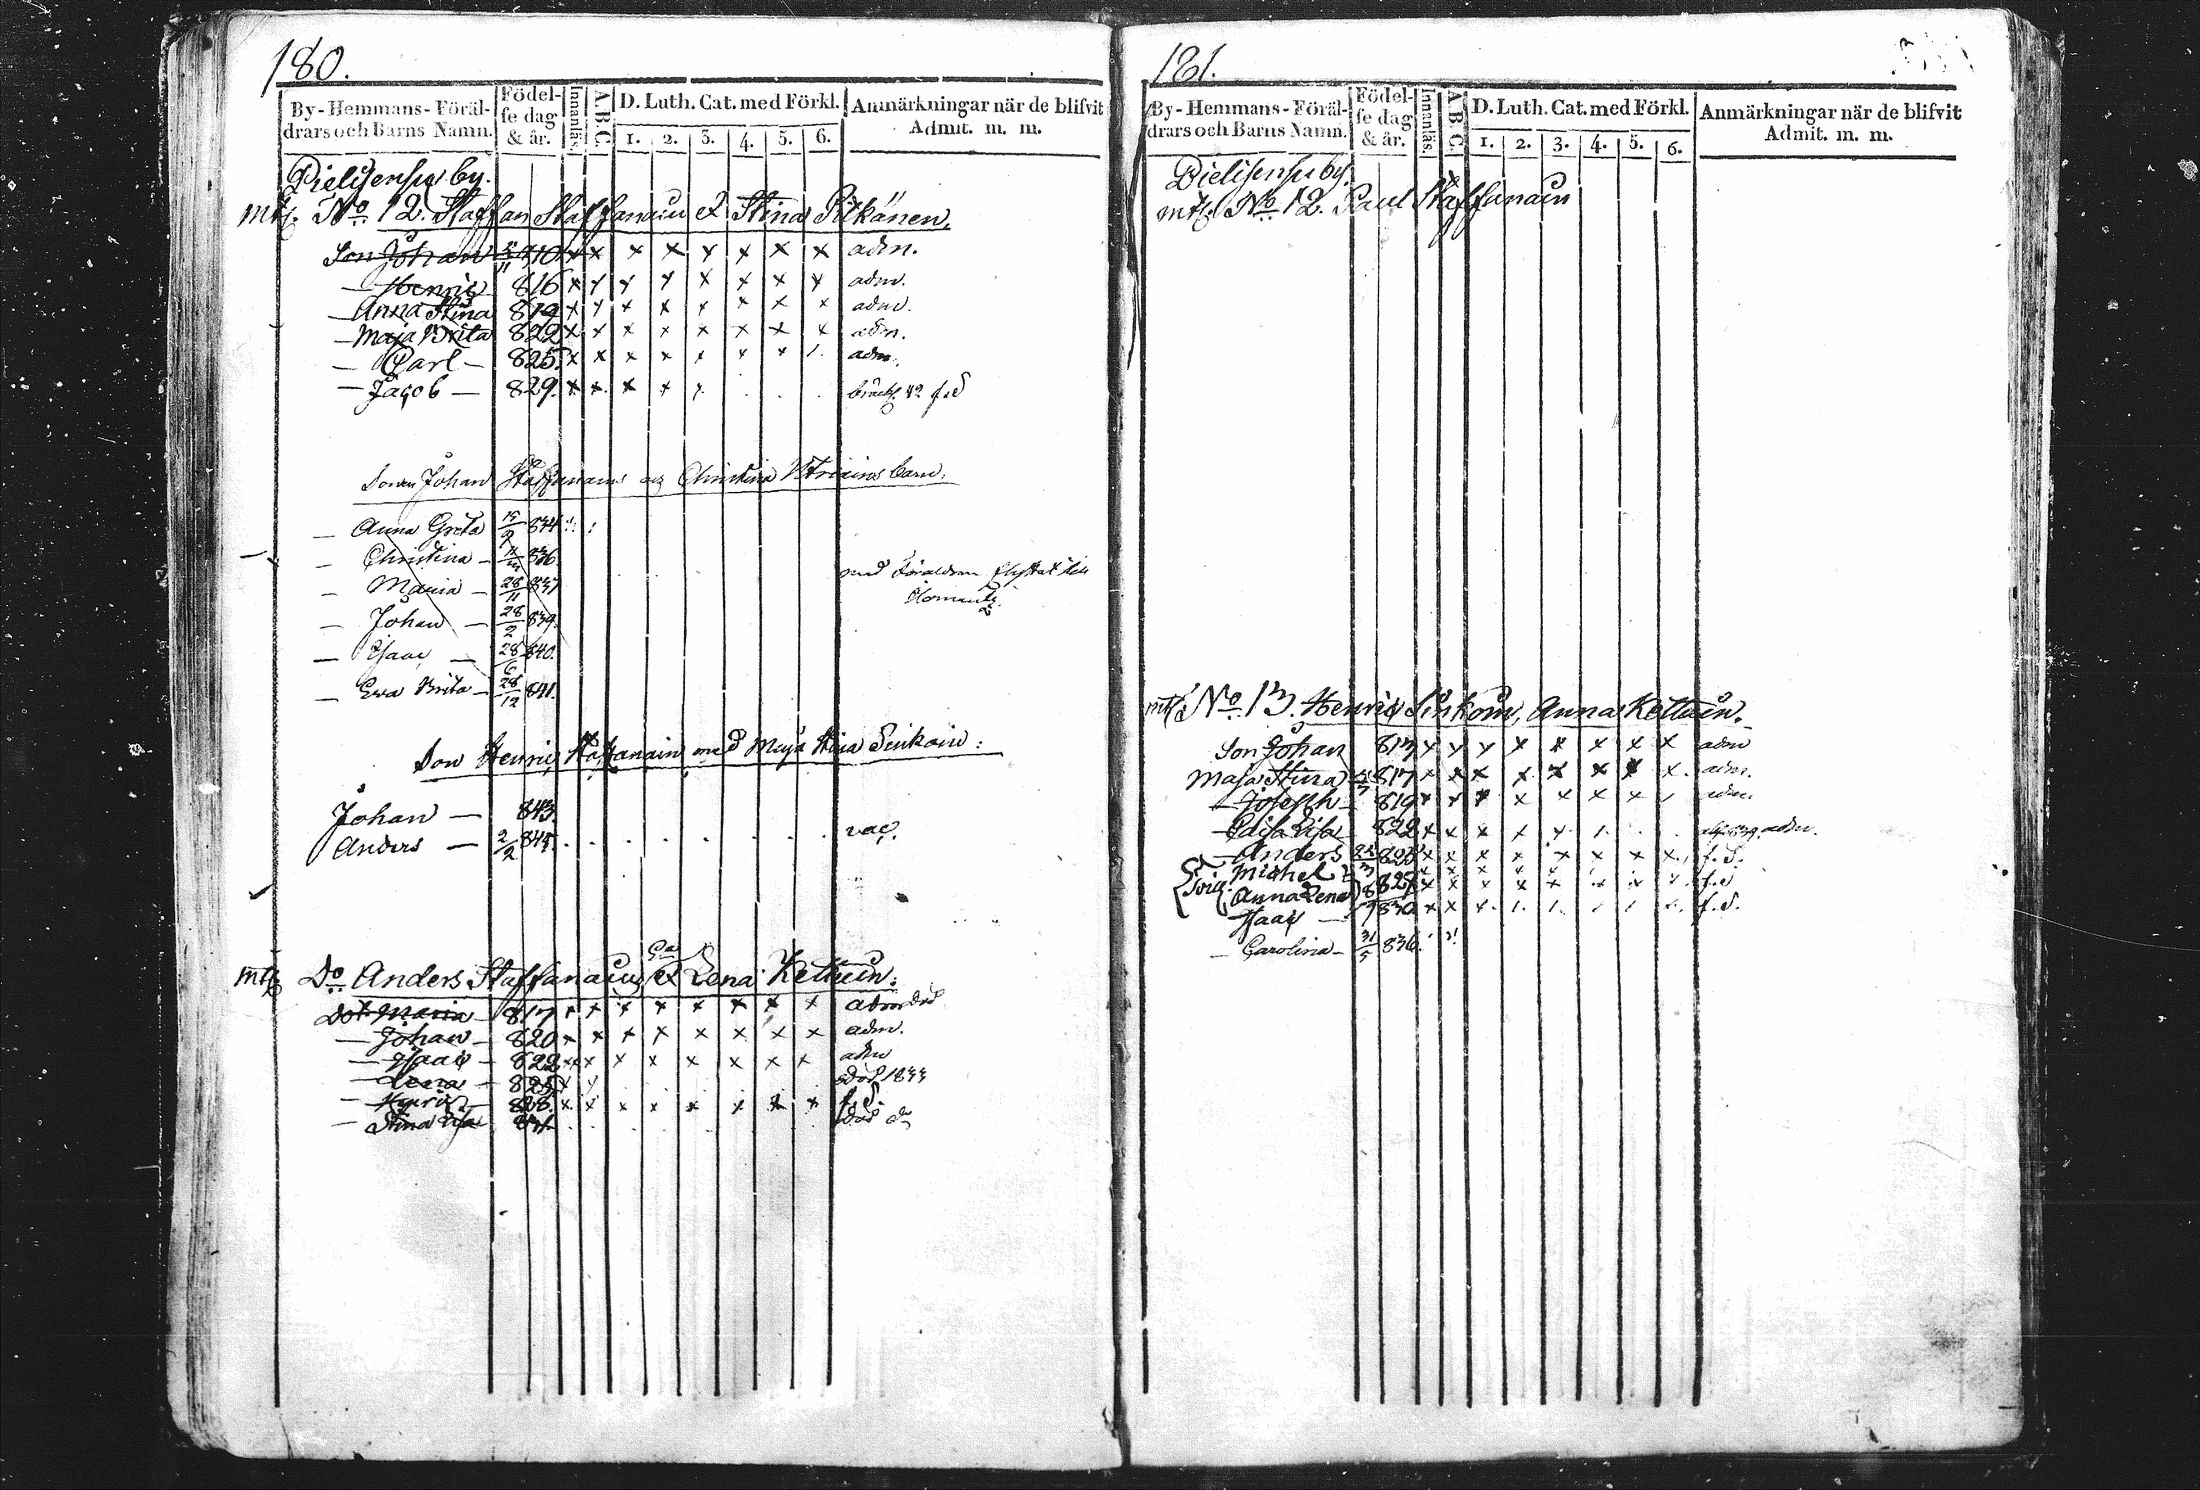 180.
By-Hemmans-Föräl-
drars och Barns Namn.
Födel-
se dag
& år.
Innanläs.
A.B.C.
D. Luth. Cat. med Förkl.
1. 2. 3. 4. 5. 6.
Anmärkningar när de blifvit
Admit. m. m.
Pielisensu by.
mtz. No. 12. Staffan Staffanain & Stina Pitkänen.
Son Johan 810 x x x x x x x x adm.
— Henric 816 x x x x x x x x adm.
— Anna Stina 819 x x x x x x x x adm.
— Maja Brita 822 x x x x x x x x adm.
— Carl — 825. x x x x x x x 1. adm.
— Jacob — 829. x x. x x x. . . . 42 f.d
Sonen Johan Staffanains och Christina barn:
— Anna Greta 15/9 834
— Christina — 836
— Maria — 28/11 837
— Johan — 28/2 839.
— Isaac — 28/6 840.
— Eva Brita — 28/12 841.
med föräldrar flyttat till
Son Henric Staffanain med Maja Stina Sinkoin:
Johan — 843.
Anders — 2/2 845. . . . . . . . vac.
mtz Do Anders Staffanain, & Lena Kettuin.
Dot. Maria 817 x x x x x x x x adm död
— Johan — 820 x x x x x x x x adm.
— Isaac — 822 x x x x x x x x adm
— Lena — 825 x x död 1833
— Henric — 828. x x x x x x x x f. d.
— Stina Lisa 831. död
181.
By-Hemmans-Föräl-
drars och Barns Namn.
Födel-
se dag
& år.
Innanläs.
A.B.C.
D. Luth. Cat. med Förkl.
1. 2. 3. 4. 5. 6.
Anmärkningar när de blifvit
Admit. m. m.
Pielisensu by.
mtz No. 12. Paul Staffanain
mtz No. 13. Henric Sinkoin, Anna Kettuin.
Son Johan 813 x x x x x x x x adm
Maja Stina 817 x x x x x x x x. adm.
— Joseph — 819 x x x x x x x x adm.
— Edisa Lisa — 822 x x x x x 1. . . adm.
— Anders 825 x x x x x x x x. f. d.
Michel
Anna Lena 827 x x x x x x x x f. d
Isaac — 830 x x x. 1. 1. 1 1 f. d.
— Carolina — 31/5 836.